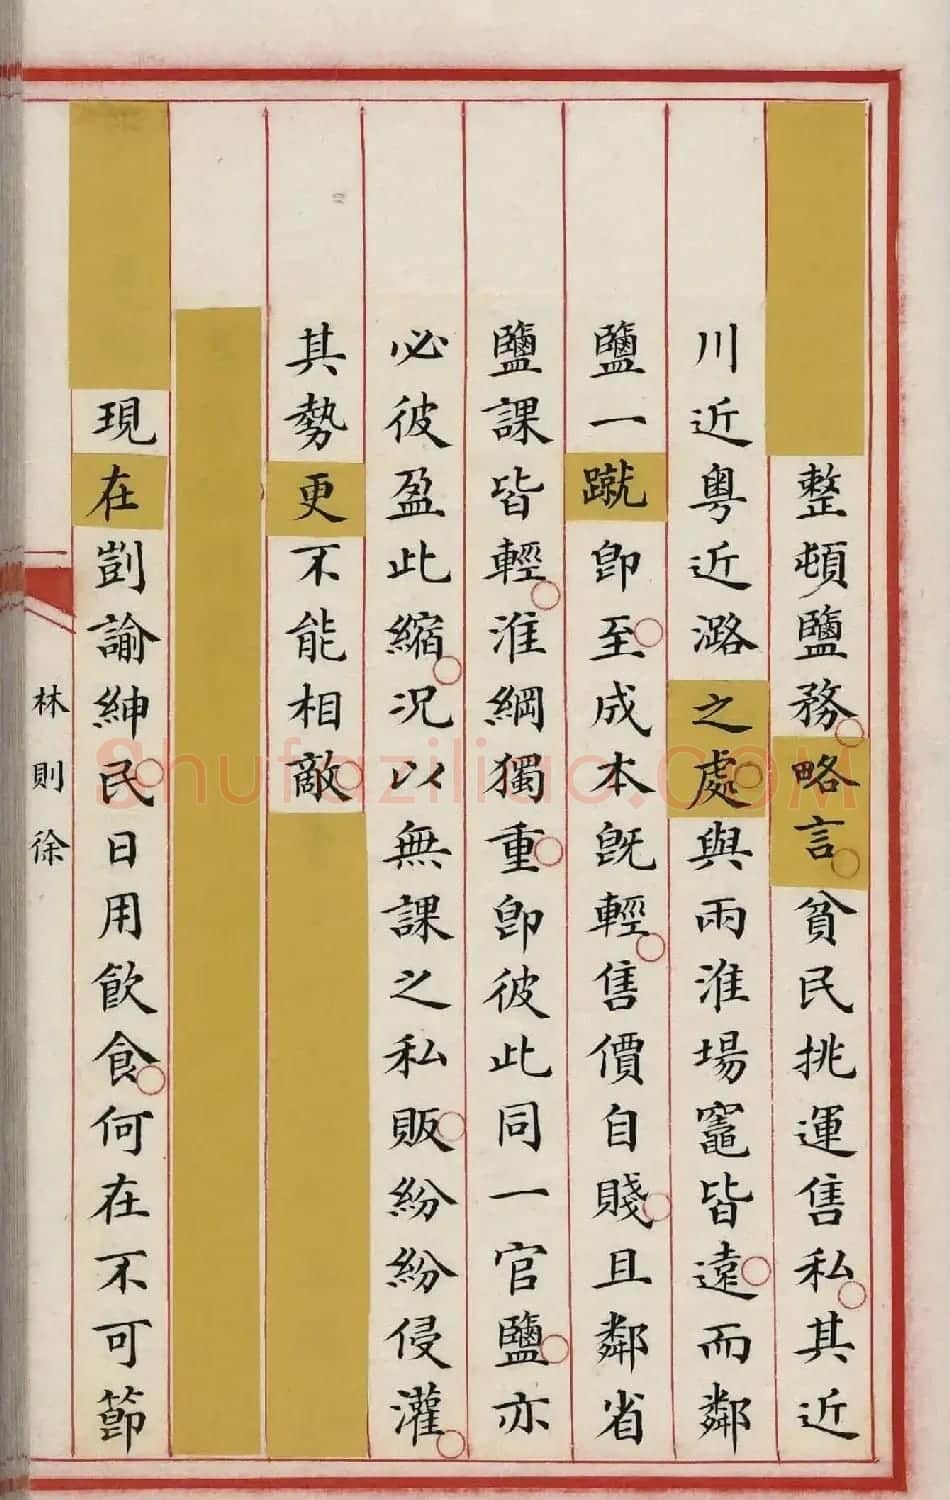 整頓鹽務略言貧民挑運售私其近
川近粵近潞之處與兩淮場竈皆遠而鄰
鹽一蹴卽至成本旣輕售價自賤且鄰省
鹽課皆輕淮綱獨重卽彼此同一官鹽亦
必彼盈此縮況以無課之私販紛紛侵灌
其勢更不能相敵
現在剴諭紳民日用飲食何在不可節
林則徐
Shufaziliao.COM